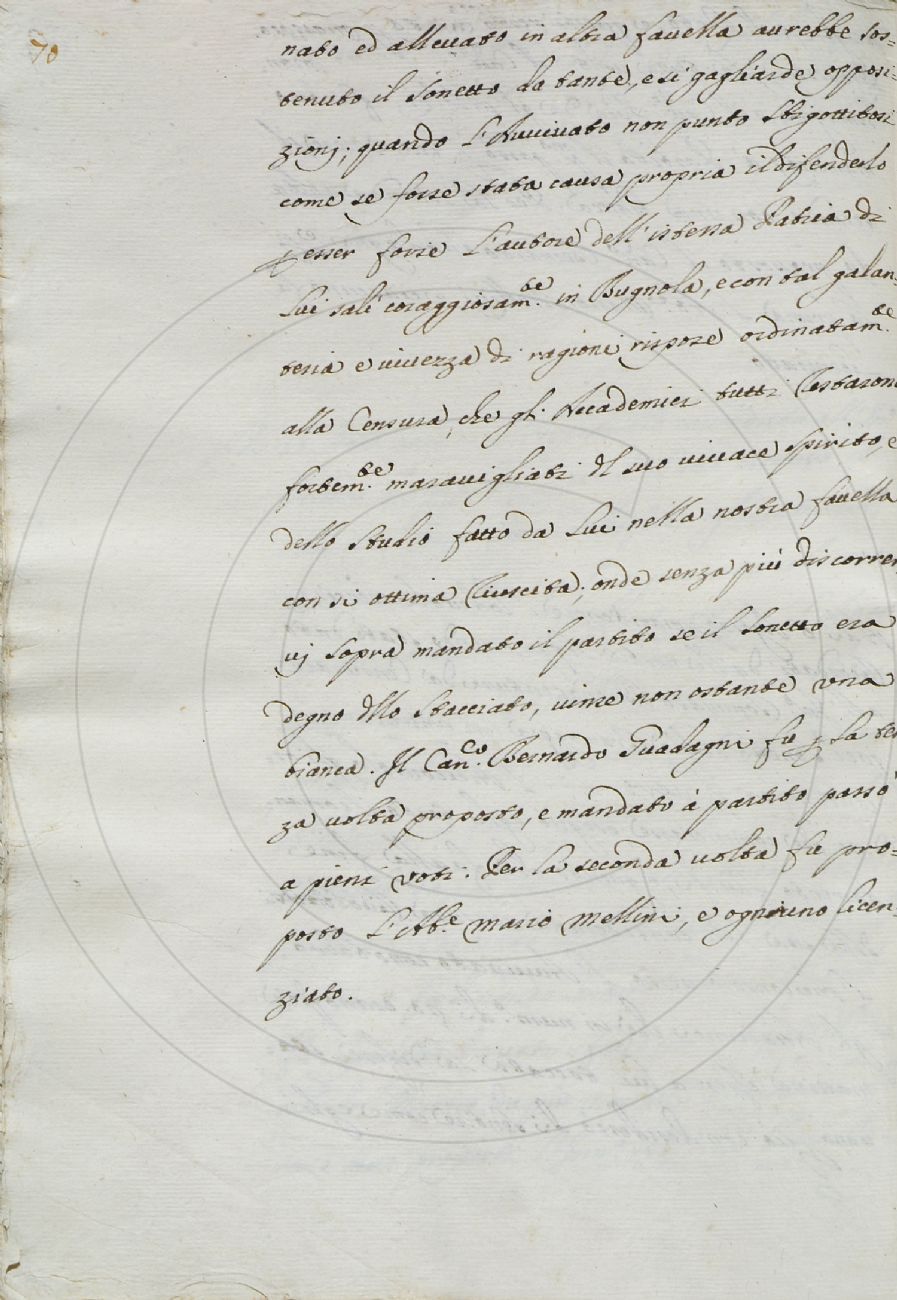 70
nato ed alleuato in altra fauella aurebbe sos=
tenuto il Sonetto da tante, e sì gagliarde opposi=
zionj; quando l'Auuiuato non punto sbigottitosi
come se fosse stata causa propria il difenderlo
ꝑ esser forse l'autore dell'istessa Patria di
lui salì coraggiosam.te in Bugnola, e con tal galan=
teria e viuezza di ragioni rispose ordinatam.te
alla Censura, che gl'Accademici tutti restarono
fortem.te marauigliati del suo viuace spirito, e
dello studio fatto da lui nella nostra fauella
con sì ottima riuscita; onde senza più discorrer
vj sopra mandato il partito se il Sonetto era
degno dello Stacciato, vinse non ostante vna
bianca. Il Can.co Bernardo Guadagni fu ꝑ la ter
za volta proposto, e mandato à partito passò
a pieni voti. Per la seconda uolta fu pro=
posto l'Ab.e Mario Mellini, e ogniuno licen=
ziato.